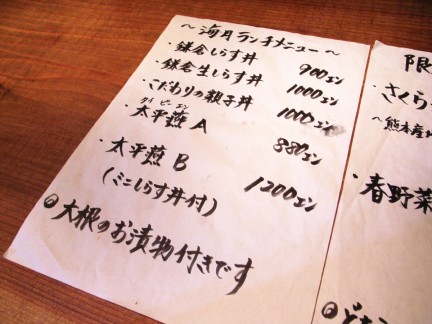 ～海月ランチメニュー～
・鎌倉しらす丼 900エン
・鎌倉生しらす丼 1000エン
・こだわりの親子丼 1000エン
タイ ピー エン
・太平燕A 880エン
・太平燕B 1200エン
(ミニしらす丼付)
◎大根のお漬物付きです
限
・さくら
～熊本産
・春野菜
◎どち